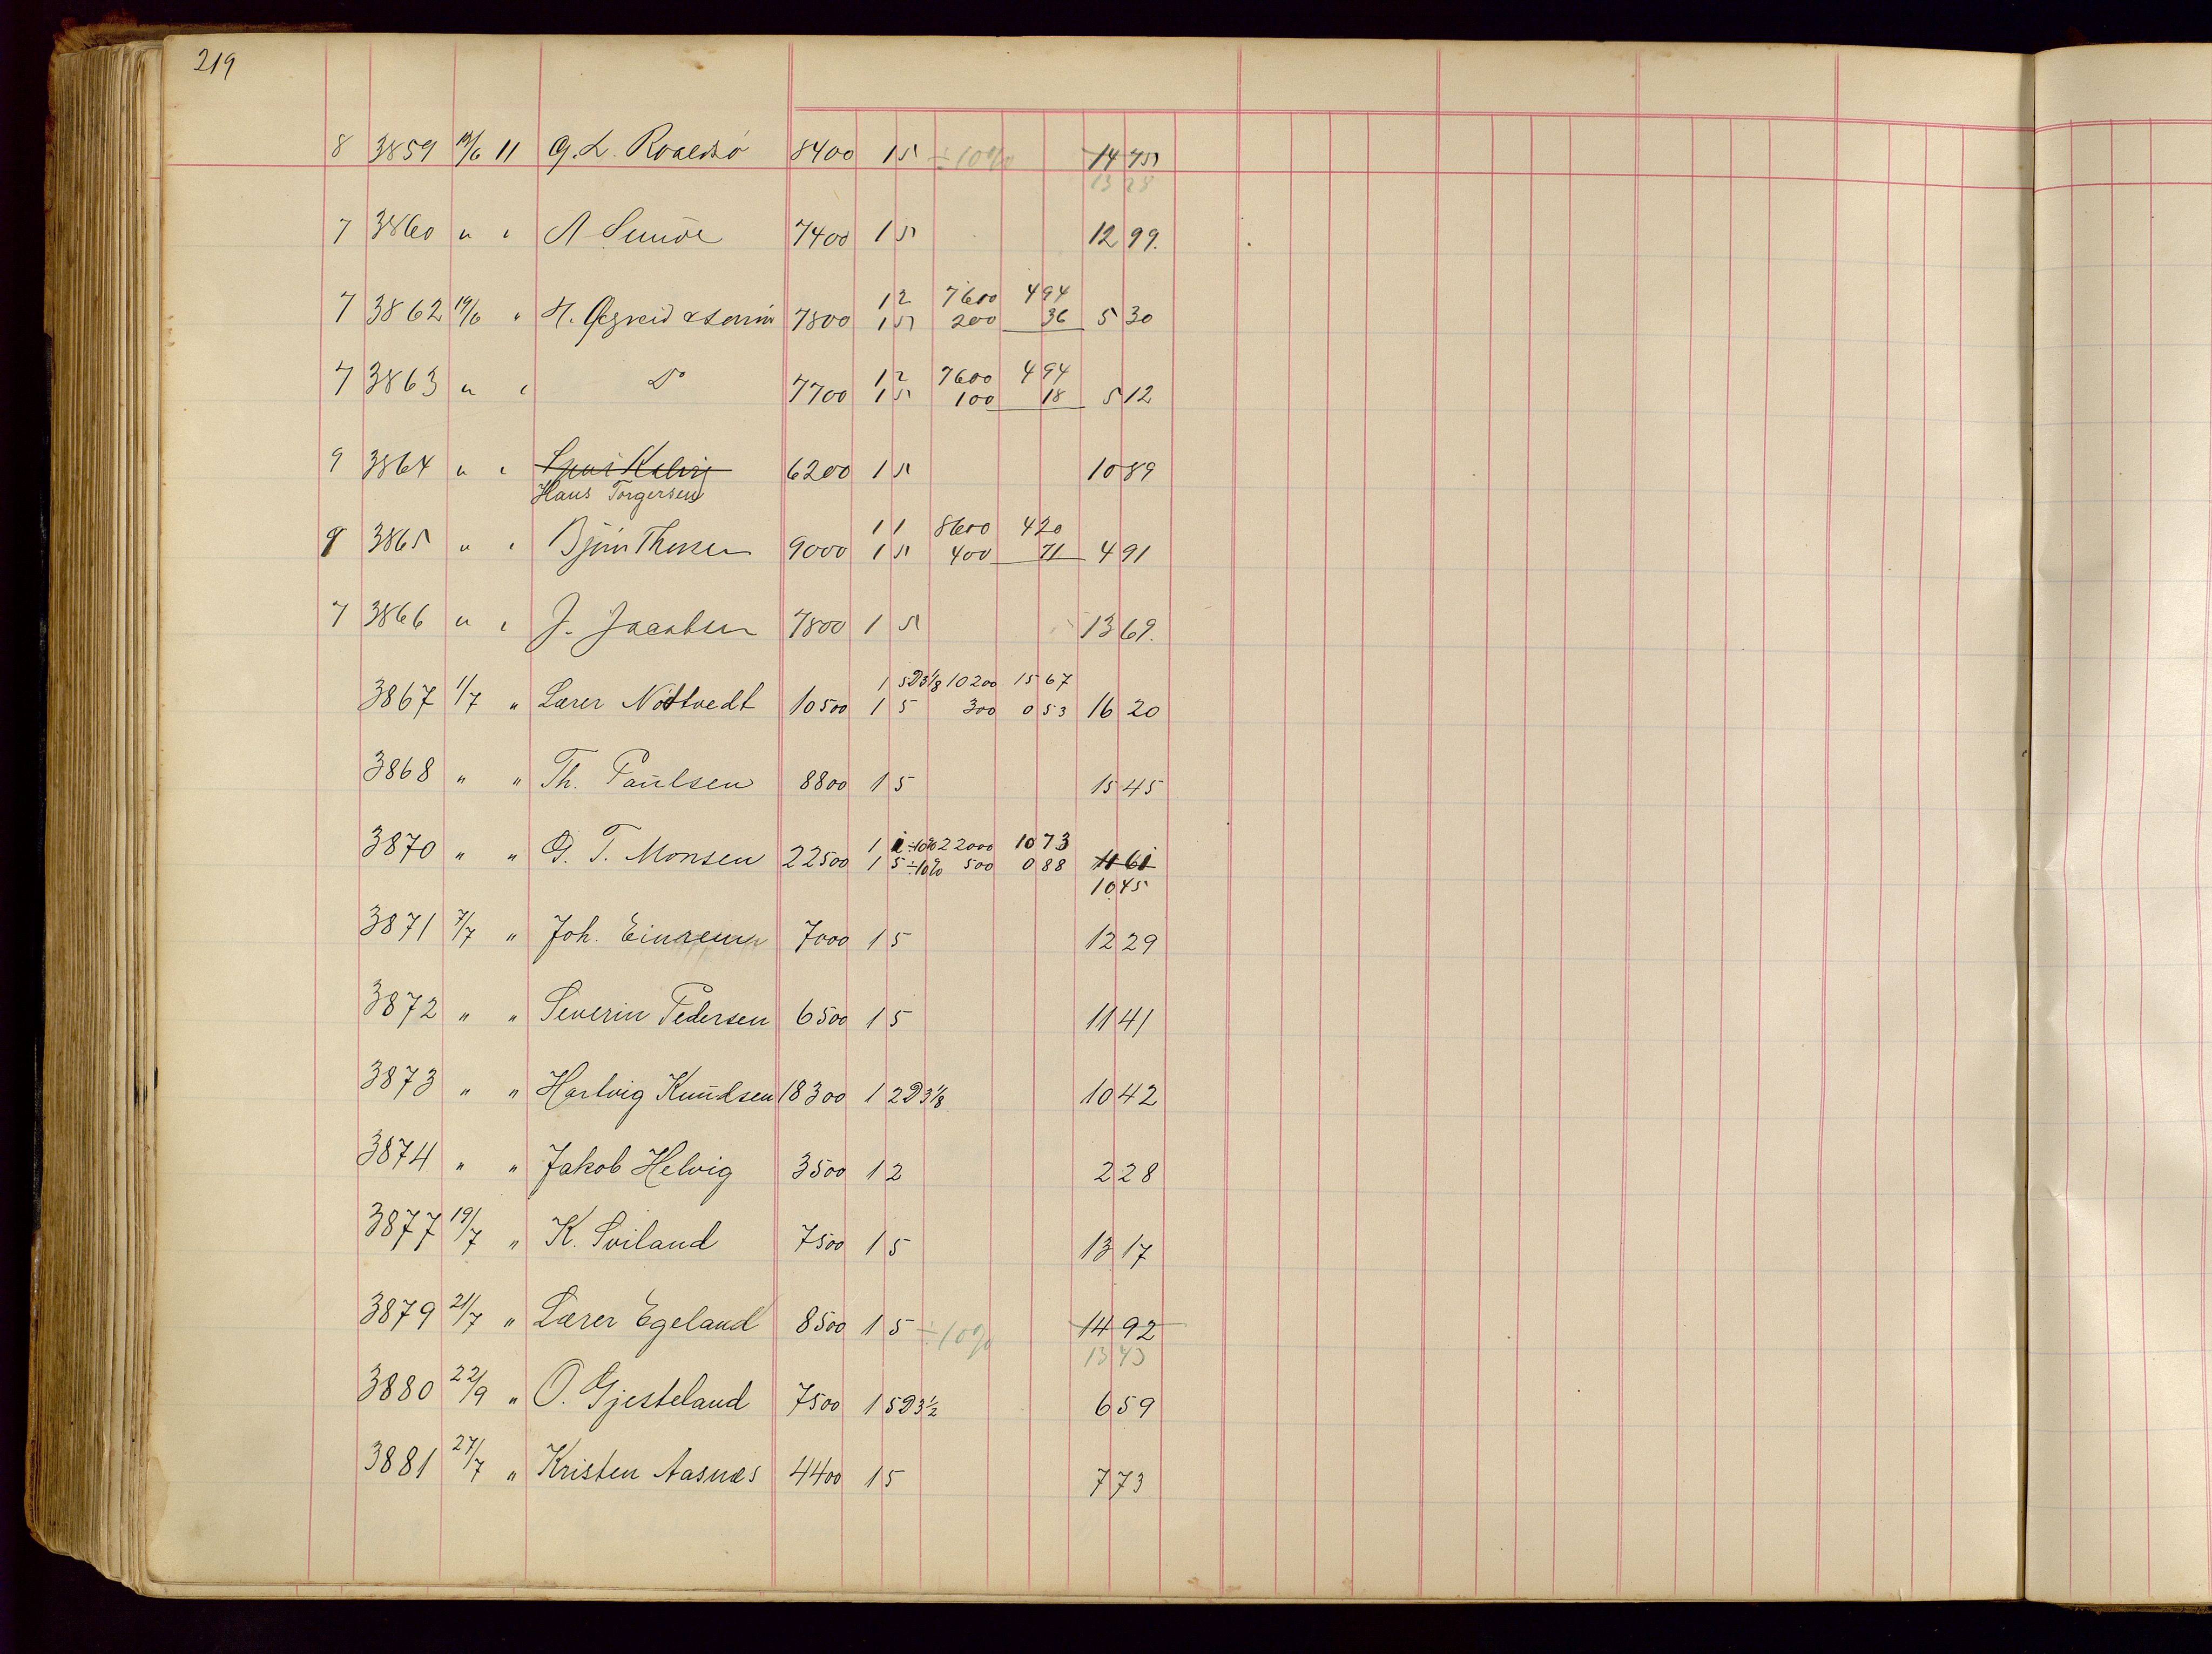 219
8 3859 19/6 11 G. L. Roaldsö 8400 1 5 ÷10% 14 75
13 28
7 3860 " " A Sunde 7400 1 5 12 99.
1 2 7600 4 94
7 3862 19/6 " H. 7800 1 5 200 36 5 30
1 2 7600 4 94
7 3863 " " Do 7700 1 5 100 18 5 12
9 3864 " " 6200 1 5 10 89
Hans Torgersen
1 1 8600 4 20
9 3865 " " Björn Thorsen 9000 1 5 400 71 4 91
7 3866 " " J. Jacobsen 7800 1 5 13 69.
1 5 D3 1/8 10200 15 67
3867 1/7 " Lærer Nödtvedt 10500 1 5 300 0 53 16 20
3868 " " Th. Paulsen 8800 1 5 15 45
1 1 ÷10% 22000 10 73
3870 " " G. T. Monsen 22500 1 5 ÷10% 500 0 88 11 61
10 45
3871 7/7 " Joh. Einrem 7000 1 5 12 29
3872 " " Severin Pedersen 6500 1 5 11 41
3873 " " Hartvig Knudsen 18300 1 2 D3 1/8 10 42
3874 " " Jakob Helvig 3500 1 2 2 28
3877 19/7 " K. Sviland 7500 1 5 13 17
3879 21/7 " Lærer Egeland 8500 1 5 ÷10% 14 92
13 43
3880 22/9 " O. Gjesteland 7500 1 5 D3 1/2 6 59
3881 27/7 " Kristen Aasnæs 4400 1 5 7 73